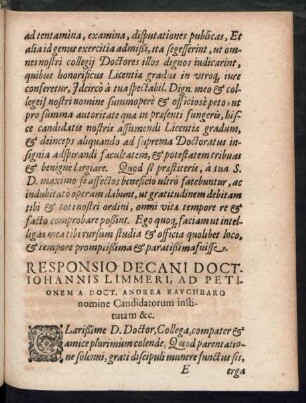 ad tentamina, examina, disputationes publicas, Et
alia id genus exercitia admißi, ita segesserint, ut om-
nes nostri collegij Doctores illos dignos iudicarint,
quibus honorificus Licentiæ gradus in vtroq, iure
conferretur, Idcircò à tua spectabil. Dign. meo &
collegij nostri nomine summopere & officiosè peto, ut
pro summa autoritate qua in præsenti fungeris, his-
ce candidatis nostris assumendi Licentiæ gradum,
& deinceps aliquando ad suprema Doctoratus in-
signia aspirandi facultatem, & potestatem tribuas
& benignè largiare. Quod si præstiteris, à tua S.
D. maximo se affectos beneficio ultrò fatebuntur, ac
indubitatò operam dabunt, ut gratitudinem debitam
tibi & toti nostri ordini, omni vitæ tempore re &
facto comprobare poßint. Ego quoq, faciam ut intel-
ligas mea tibi rursum studia & officia quolibet loco,
& tempore promptißima & paratißima fuisse.
RESPONSIO DECANI DOCT.
IOHANNIS LIMMERI, AD PETI-
ONEM A DOCT. ANDREA RAVCHBARO
nomine Candidatorum insti-
tutam &c.
CLarißime D. Doctor, Collega, compater &
amice plurimùm colende, Quod parentatio-
ne solenni, grati discipuli munere functus sis,
E erga